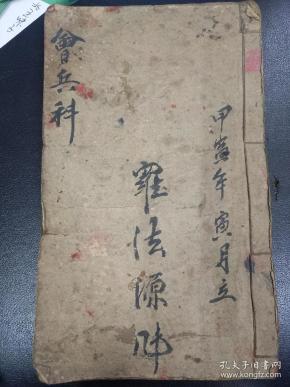 甲寅年寅月立
會兵科
羅法源
孔夫子旧书网